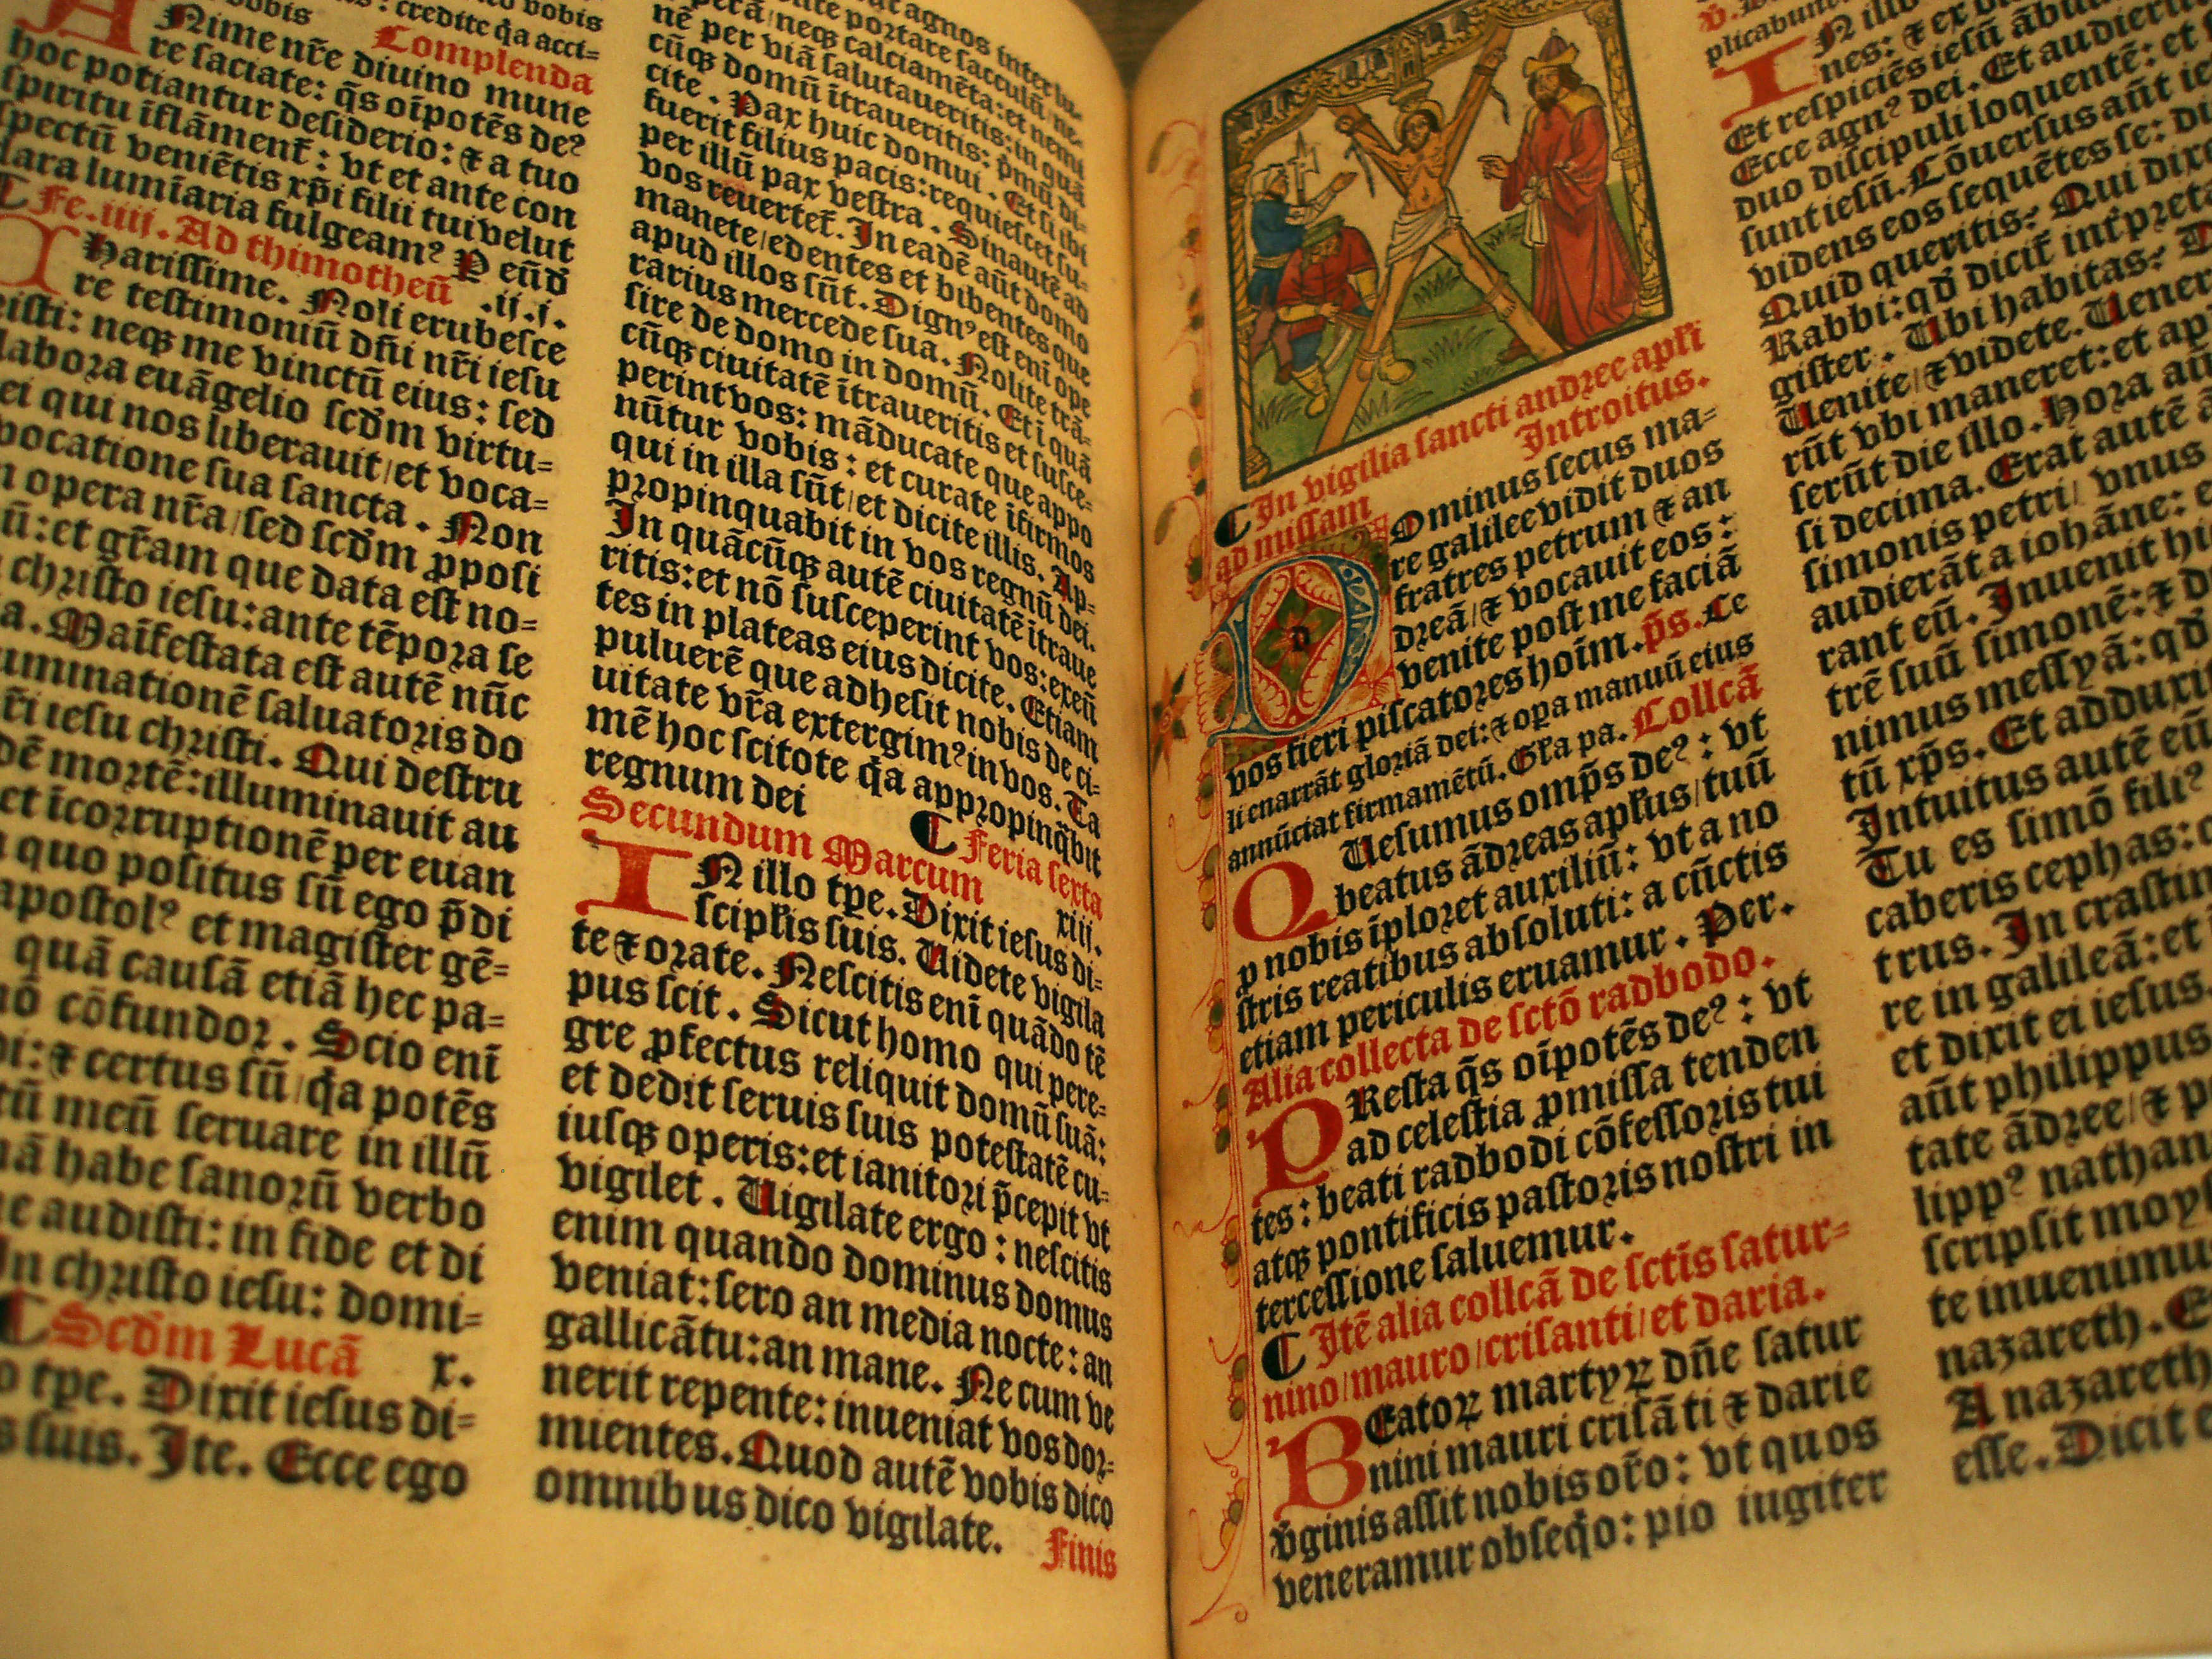 vobis : credite q̃a acci=
Complenda
Nime nr̃e diuino mune
re saciate: q̃s oĩpotẽs deꝰ
hoc potiantur desiderio: ⁊ a tuo
spiritu ĩflãment᷑ : vt et ante con
spectũ veniẽtis xp̃i filii tui velut
clara lumĩaria fulgeamꝰ P eũd
Fe. iiij. Ad thimotheũ .ij. j.
Harissime. Noli erubesce
re testimoniũ dñi nr̃i iesu
neqꝫ me vinctũ eius: sed
labora euãgelio scd̃m virtu=
ei qui nos liberauit/et voca=
vocatione sua sancta. Non
opera nr̃a/sed scd̃m ꝓposi
et gr̃am que data est no=
christo iesu: ante tẽpora se
Maĩfestata est autẽ nũc
illuminationẽ saluatoris do
iesu christi. Qui destru
mortẽ: illuminauit au
et ĩcorruptionẽ per euan
quo positus sũ ego p̃di
apostolꝰ et magister gẽ=
quã causã etiã hec pa=
cõfundor. Scio enĩ
⁊ certus sũ/q̃a potẽs
meũ seruare in illũ
habe sanorũ verbo
audisti: in fide et di
in christo iesu: domi=
Scd̃m Lucã x.
tꝑe. Dixit iesus di=
suis. Ite. Ecce ego
agnos inter lu
portare sacculũ/ne
perã/neqꝫ calciamẽta: et nemi
nẽ per viã salutaueritis: in quã
cũqꝫ domũ ĩtraueritis: p̃mũ di=
cite. Pax huic domui. Et si ibi
fuerit filius pacis: requiescet su=
per illũ pax vestra. Sinautẽ ad
vos reuertet᷑. In eadẽ aũt domo
manete/edentes et bibentes que
apud illos sũt. Dignꝰ est enĩ ope
rarius mercede sua. Nolite trã=
sire de domo in domũ. Et ĩ quã
cũqꝫ ciuitatẽ ĩtraueritis et susce=
perint vos: mãducate que appo
nũtur vobis: et curate ĩfirmos
qui in illa sũt/et dicite illis. Ap=
propinquabit in vos regnũ dei.
In quãcũqꝫ autẽ ciuitatẽ ĩtraue
ritis: et nõ susceperint vos: exeũ
tes in plateas eius dicite. Etiam
puluerẽ que adhesit nobis de ci=
uitate vr̃a extergimꝰ in vos. Ta
mẽ hoc scitote q̃a appropinq̃bit
regnum dei Feria sexta
Secundum Marcum xiij.
IN illo tꝑe. Dixit iesus di=
scipl̃is suis. Uidete vigila
te ⁊ orate. Nescitis enĩ quãdo tẽ
pus scit. Sicut homo qui pere=
gre ꝓfectus reliquit domũ suã:
et dedit seruis suis potestatẽ cu=
iusqꝫ operis: et ianitori p̃cepit vt
vigilet. Uigilate ergo: nescitis
enim quando dominus domus
veniat: sero an media nocte: an
gallicãtu: an mane. Ne cum ve
nerit repente: inueniat vos dor=
mientes. Quod autẽ vobis dico
omnibus dico vigilate.
Finis
In vigilia sancti andree apl̃i
ad missam Introitus.
DOminus secus ma=
re galilee vidit duos
fratres petrum ⁊ an
dreã/⁊ vocauit eos:
venite post me faciã
vos fieri piscatores hoĩm. p̃s. Ce
li enarrãt gloriã dei: ⁊ oꝑa manuũ eius
annũciat firmamẽtũ. Gl̃a pa. Collcã
QUesumus omp̃s deꝰ: vt
beatus ãdreas apl̃us/tuũ
ꝓ nobis ĩploret auxiliũ: vt a no
stris reatibus absoluti: a cũctis
etiam periculis eruamur. Per.
Alia collecta de sctõ radbodo.
PResta q̃s oĩpotẽs deꝰ: vt
ad celestia ꝓmissa tenden
tes: beati radbodi cõfessoris tui
atqꝫ pontificis pastoris nostri in
tercessione saluemur.
Itẽ alia collcã de sctĩs satur=
nino/mauro/crisanti/et daria.
BEatoꝝ martyꝝ dñe satur
nini mauri crisãti ⁊ darie
v̑ginis assit nobis or̃o: vt quos
veneramur obseq̃o: pio iugiter
plicabunt
IN illo
nes: ⁊ ex
Et respiciẽs iesũ ãbu
Ecce agnꝰ dei. Et audierũ
duo discipuli loquentẽ: et
sunt iesũ. Cõuersus aũt ie
videns eos sequẽtes se: di
Quid queritis? Qui dixe
Rabbi: qd̃ dicit᷑ int̃preta
gister. Ubi habitas?
Uenite/⁊ videte. Uener
rũt vbi maneret: et ap
serũt die illo. Hora aũ
si decima. Erat autẽ
simonis petri/ vnus
audierãt a iohãne:
rant eũ. Inuenit hi
trẽ suũ simonẽ: ⁊ d
nimus messyã: qd̃
tũ xp̃s. Et adduxi
Intuitus autẽ eũ
Tu es simõ filiꝰ
caberis cephas:
trus. In crastin
re in galileã: et
et dixit ei iesus
aũt philippus
tate ãdree/⁊ p
lippꝰ nathan
scripsit moy
te inuenimu
nazareth. E
A nazareth
esse. Dicit